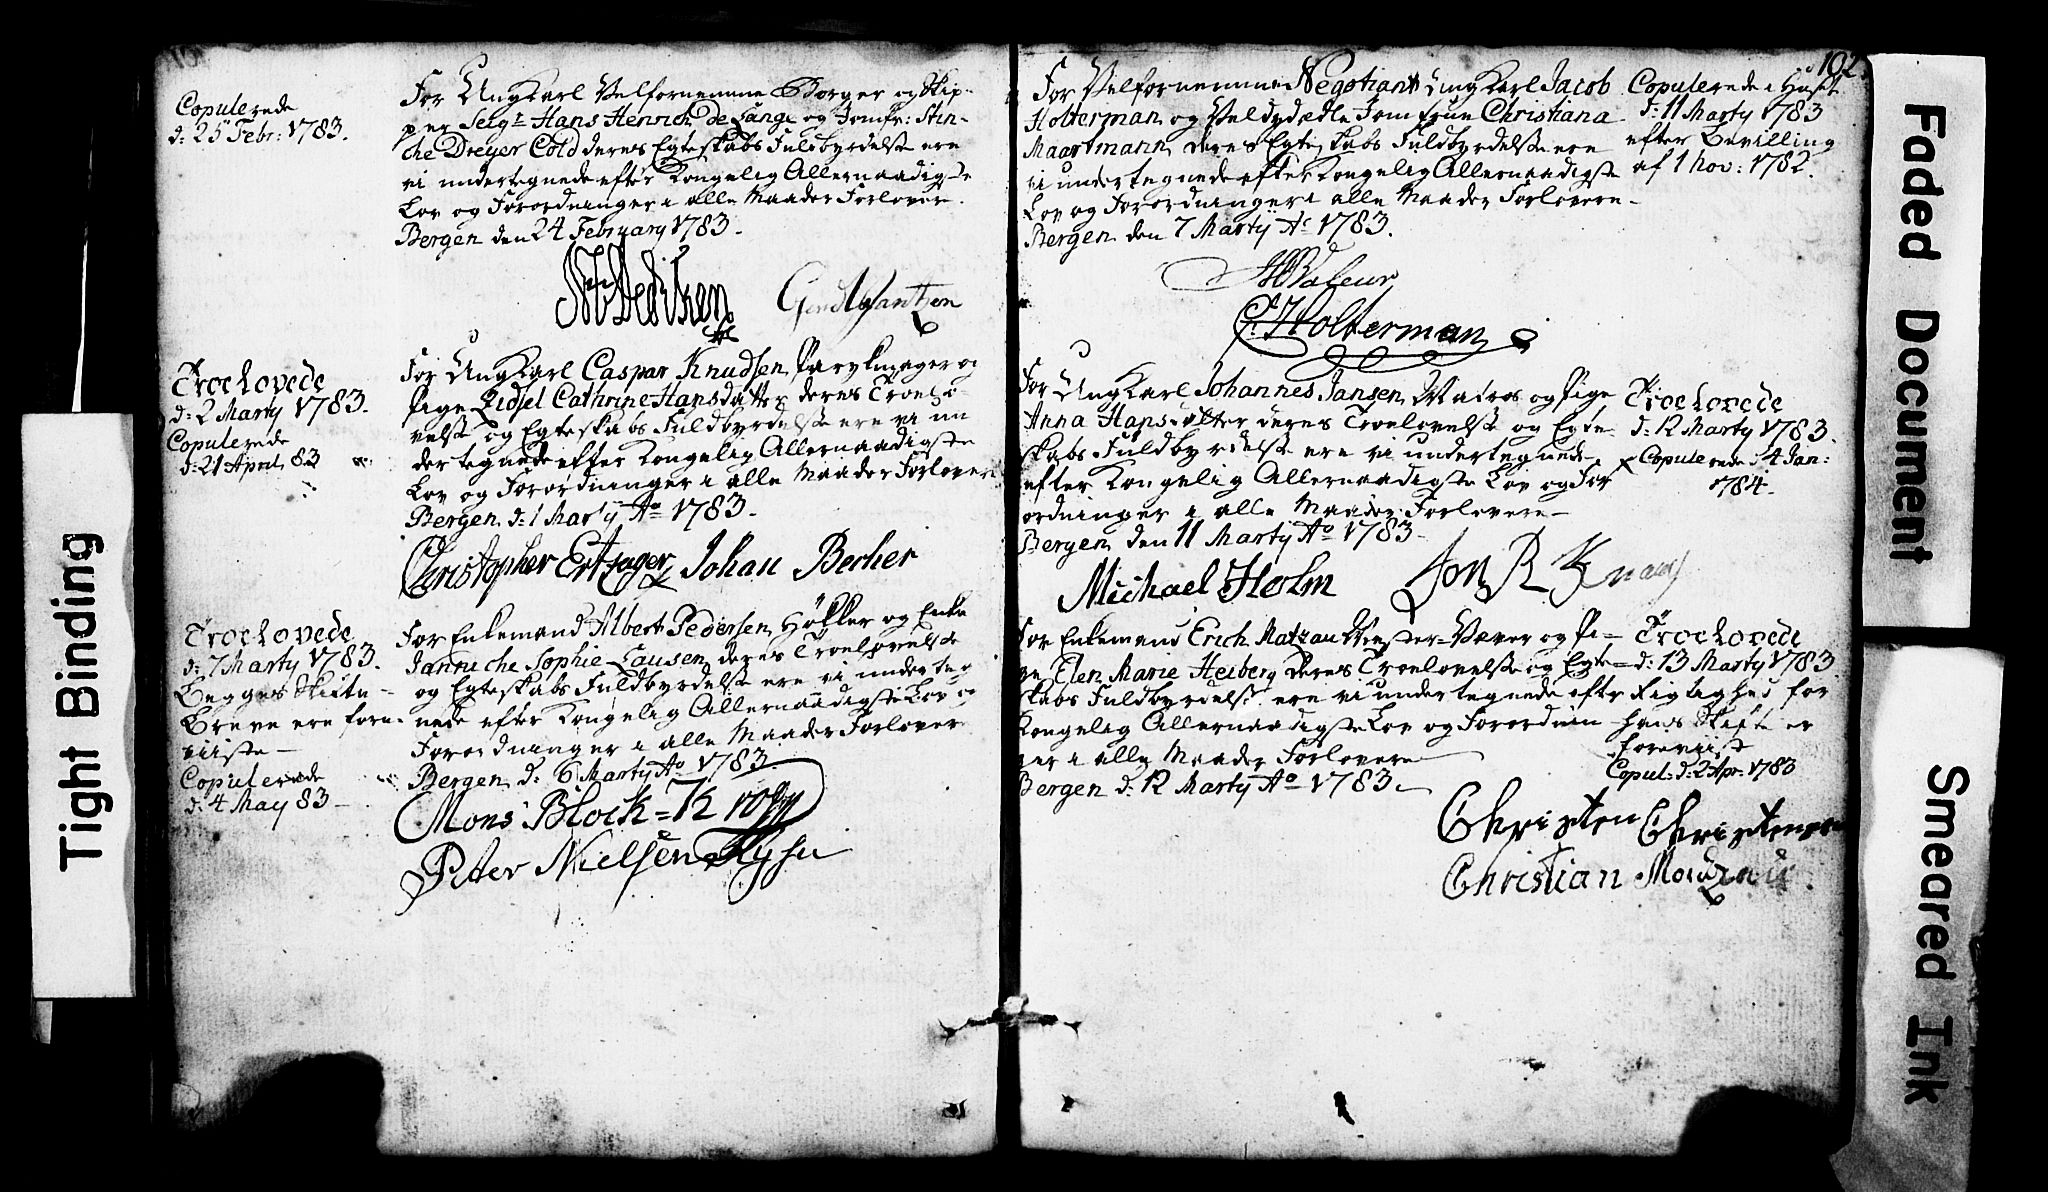 Copulerede
d: 25 Febr: 1783.
For Ung Karl Velfornemme Borger og Skip-
per Seigr Hans Henrich de Lange og Jomfr: Stin-
che Dreyer Cold deres Egteskabs Fuldbyrdelse ere
vi undertegnede efter Kongelig Allernaadigste
Lov og Forordninger i alle Maader Forlovere.
Bergen den 24 February 1783.
Troelovede
d: 2 Marty 1783.
Copulerede
d: 21 April 83
For Ung Karl Caspar Knudsen Parykmager og
Pige Lidsel Cathrine Hansdatter deres Troelo-
velse og Egteskabs Fuldbyrdelse ere vi un
dertegnede efter Kongelig Allernaadigste
Lov og Forordninger i alle Maader Forlover
Bergen d: 1 Marty Ao 1783.
Christopher Ertzager Johan Becher
Troelovede
d: 7 Marty 1783.
Begges Skifte-
Breve ere fore-
viiste-
Copulerede
d: 4 May 83-
For Enkemand Albert Pedersen Høkker og Enke
Janniche Sophie Lausen deres Troelovelse
og Egteskabs Fuldbyrdelse ere vi underteg
nede efter Kongelig Allernaadigste Lov og
Forordninger i alle Maader Forlover
Bergen d: 6 Marty Ao 1783.
Mons Block=Krogh
Peter Nielsen
102.
For Velfornemme Negotiant Ung Karl Jacob
Holterman og Velædle Jomfrue Christiana
Maartmann deres Egteskabs Fuldbyrdelse ere
vi undertegnede efter Kongelig Allernaadigste
Lov og Forordninger i alle Maader Forlovere-
Bergen den 7 Marty Ao 1783.
Copulerede i Huset
d: 11 Marty 1783
efter Bevilling
af 1 Nov: 1782.
Holterman
For Ung Karl Johannes Jansen Matros og Pige
Anna Hansdatter deres Troelovelse og Egte-
skabs Fuldbyrdelse ere vi undertegnede
efter Kongelig Allernaadigste Lov og For
ordninger i alle Maader Forlovere-
Bergen den 11 Marty Ao 1783-
Troelovede
d: 12 Marty 1783.
Copulerede d 4 Jan:
1784.
Michael Holm Jon R
For Enkemand Erich Matzau Mester=Væver og Pi-
ge Elen Marie Heiberg deres Troelovelse og Egte-
skabs Fuldbyrdelse ere vi undertegnede efter
Kongelig Allernaadigste Lov og Forordnin-
ger i alle Maader Forlovere
Bergen d: 12 Marty Ao 1783.-
Troelovede
d: 13 Marty 1783
Rigtighed for
hans Skifte er
foreviist
Copul: d: 2 Apr: 1783
Christen Christensen
Christian
Tight Binding
Faded Document
Smeared Ink